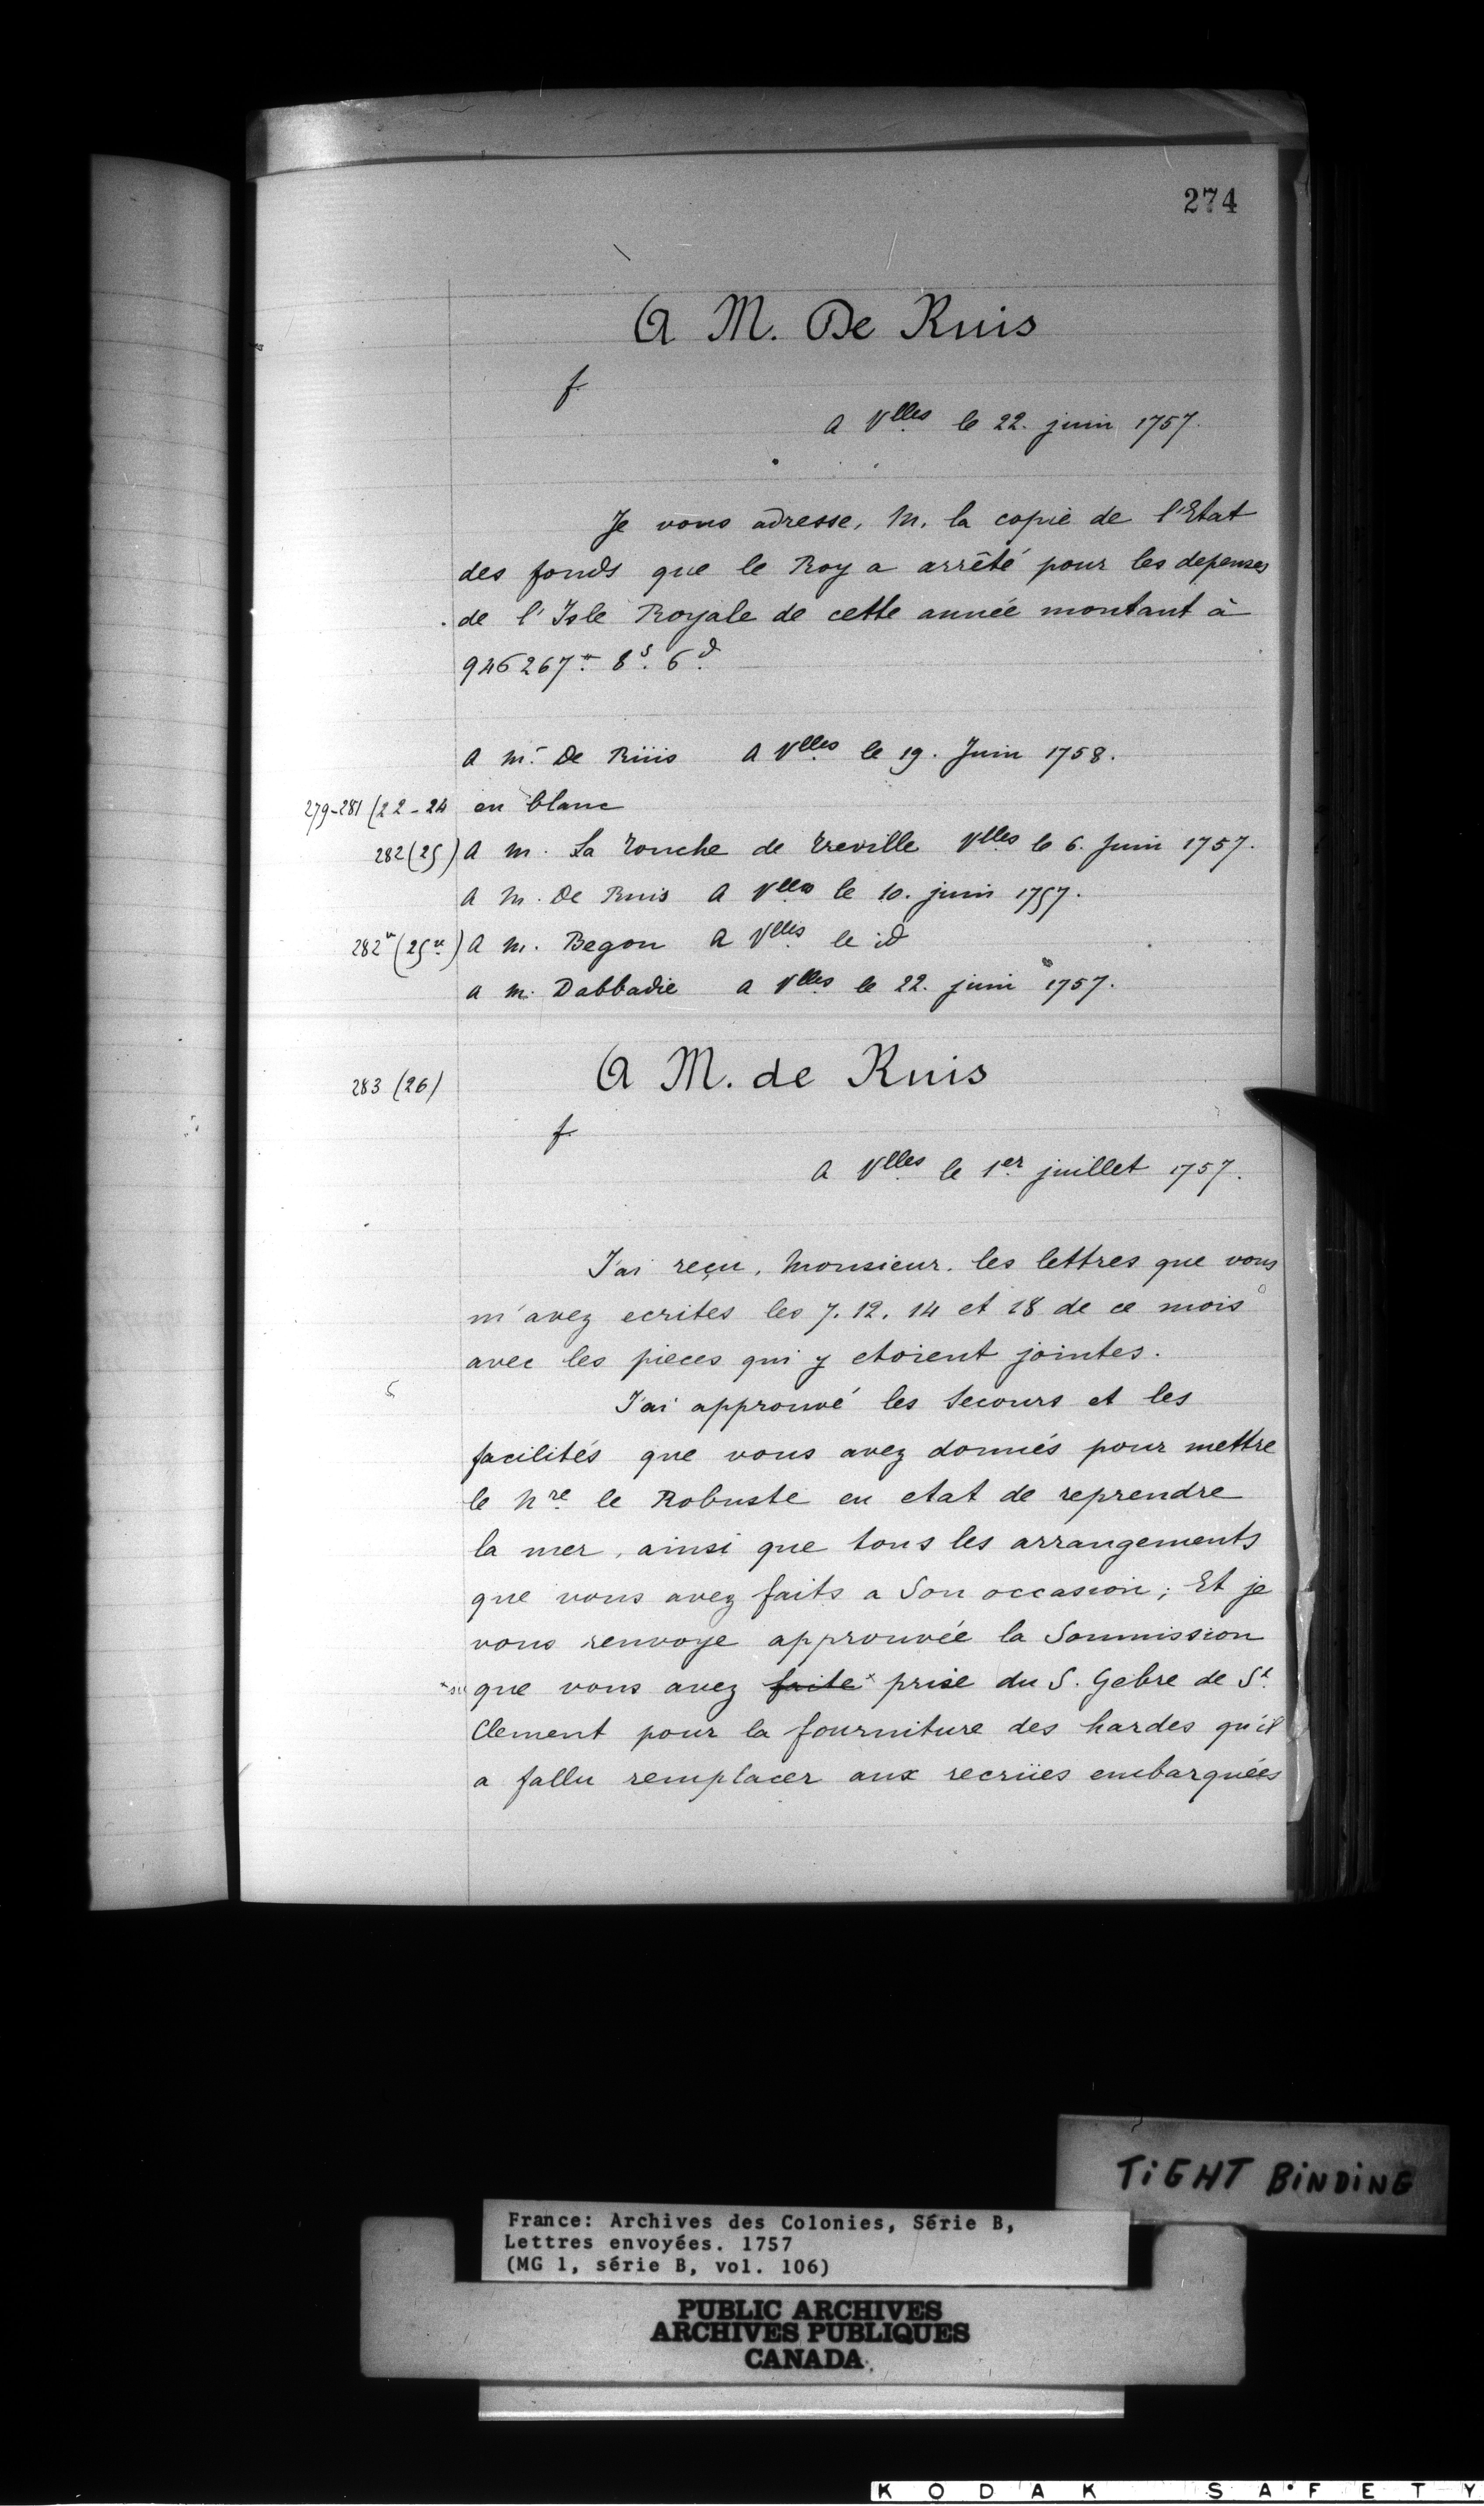 274
A M. De Ruis
f.
A Vlles le 22. juin 1757.
Je vous adresse, M. la copie de l'Etat
des fonds que le Roy a arrêté pour les depenses
de l'Isle Royale de cette année montant à
946267ᵗᵗ 8ˢ. 6ᵈ
A Mr De Rüis A Vlles le 19. Juin 1758.
279-281 (22-24 en blanc
282 (25) A M. La Touche de Treville Vlles le 6. Juin 1757.
A M. De Ruis A Vlles le 10. juin 1757.
282ᵛ (25ᵛ) A M. Begon A Vlles le id
A M. Dabbadie A Vlles le 22. juin 1757.
283 (26) A M. de Ruis
f.
A Vlles le 1er juillet 1757.
J'ai reçu, Monsieur. les lettres que vous
m'avez ecrites les 7. 12. 14 et 18 de ce mois
avec les pieces qui y etoient jointes.
J'ai approuvé les Secours et les
facilités que vous avez donnés pour mettre
le Nre le Robuste en etat de reprendre
la mer, ainsi que tous les arrangements
que vous avez faits a Son occasion; Et je
vous renvoye approuvée la Soumission
que vous avez faite x prise du S. Gebre de St
Clement pour la fourniture des hardes qu'il
a fallu remplacer aux recrües embarquées
TiGHT BiNDiNG
France: Archives des Colonies, Série B,
Lettres envoyées. 1757
(MG 1, série B, vol. 106)
PUBLIC ARCHIVES
ARCHIVES PUBLIQUES
CANADA
KODAK SAFETY